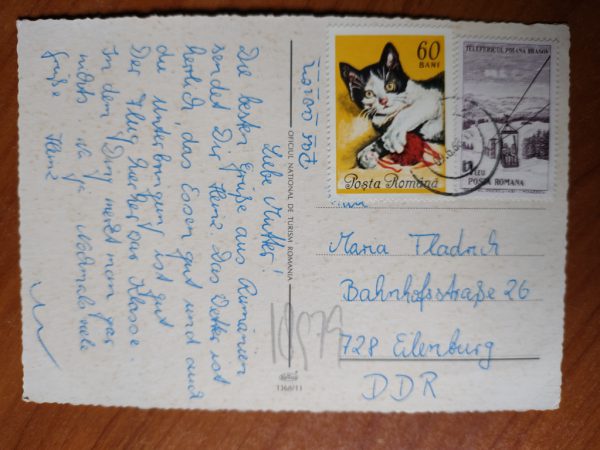 Liebe Mutter!
Die besten Grüße aus Rumänien
sendet Dir Heinz. Das Wetter ist
herrlich, das Essen gut und auch
die Unterbringung ist gut
Der Flug hierher war Klasse.
In dem Ding merkt man gar
nichts Na ja Nochmals viele
Grüße Heinz
OFICIUL NATIONAL DE TURISM ROMANIA
1368/13
60
BANI
Poșta Română
TELEFERICUL POIANA BRASOV
LEU
POSTA ROMANA
Maria Fladrich
Bahnhofstraße 26
728 Eilenburg
DDR